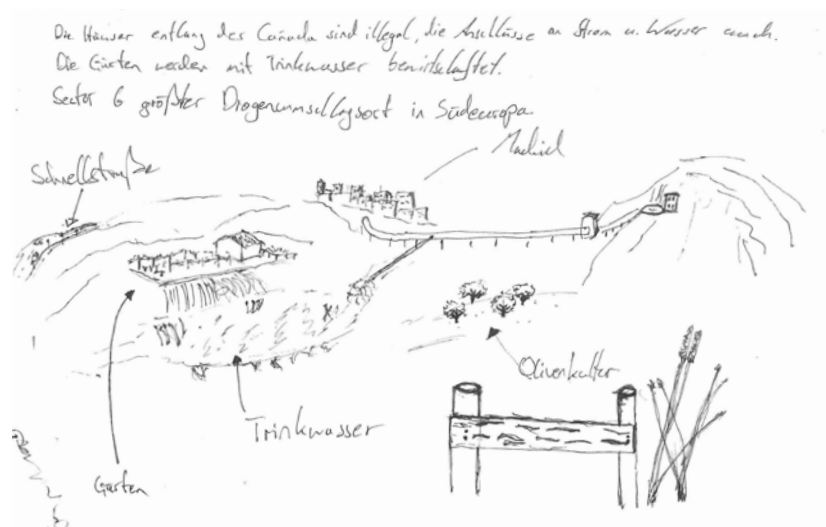 Die Häuser entlang des Cañada sind illegal, die Anschlüsse an Strom u. Wasser auch.
Die Gärten werden mit Trinkwasser bewirtschaftet.
Sector 6 größter Drogenumschlagsort in Südeuropa.
Madrid
Schnellstraße
Olivenkultur
Trinkwasser
Garten